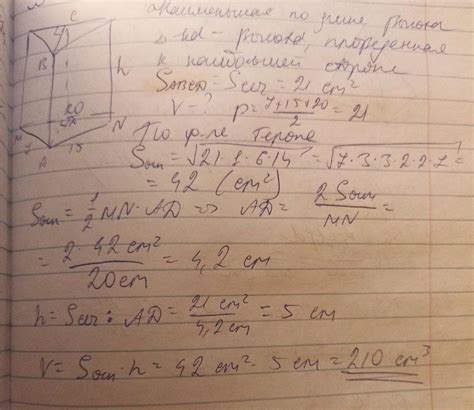 Наименьшая по длине высота
Δ-ка – высота, проведенная
к наибольшей стороне
C
B
h
20
N
M
7
A
15
S_ABCD = S_сеч = 21 cm²
V - ? p = (7+15+20)/2 = 21
По ф-ле Герона
S_осн = √21·1·6·14 = √7·3·3·2·2·7 =
= 42 (cm²)
S_осн = 1/2 MN · AD ⇒ AD = 2S_осн/MN =
= 2·42 cm²/20 cm = 4,2 cm
h = S_сеч : AD = 21 cm²/4,2 cm = 5 cm
V = S_осн · h = 42 cm² · 5 cm = 210 cm³